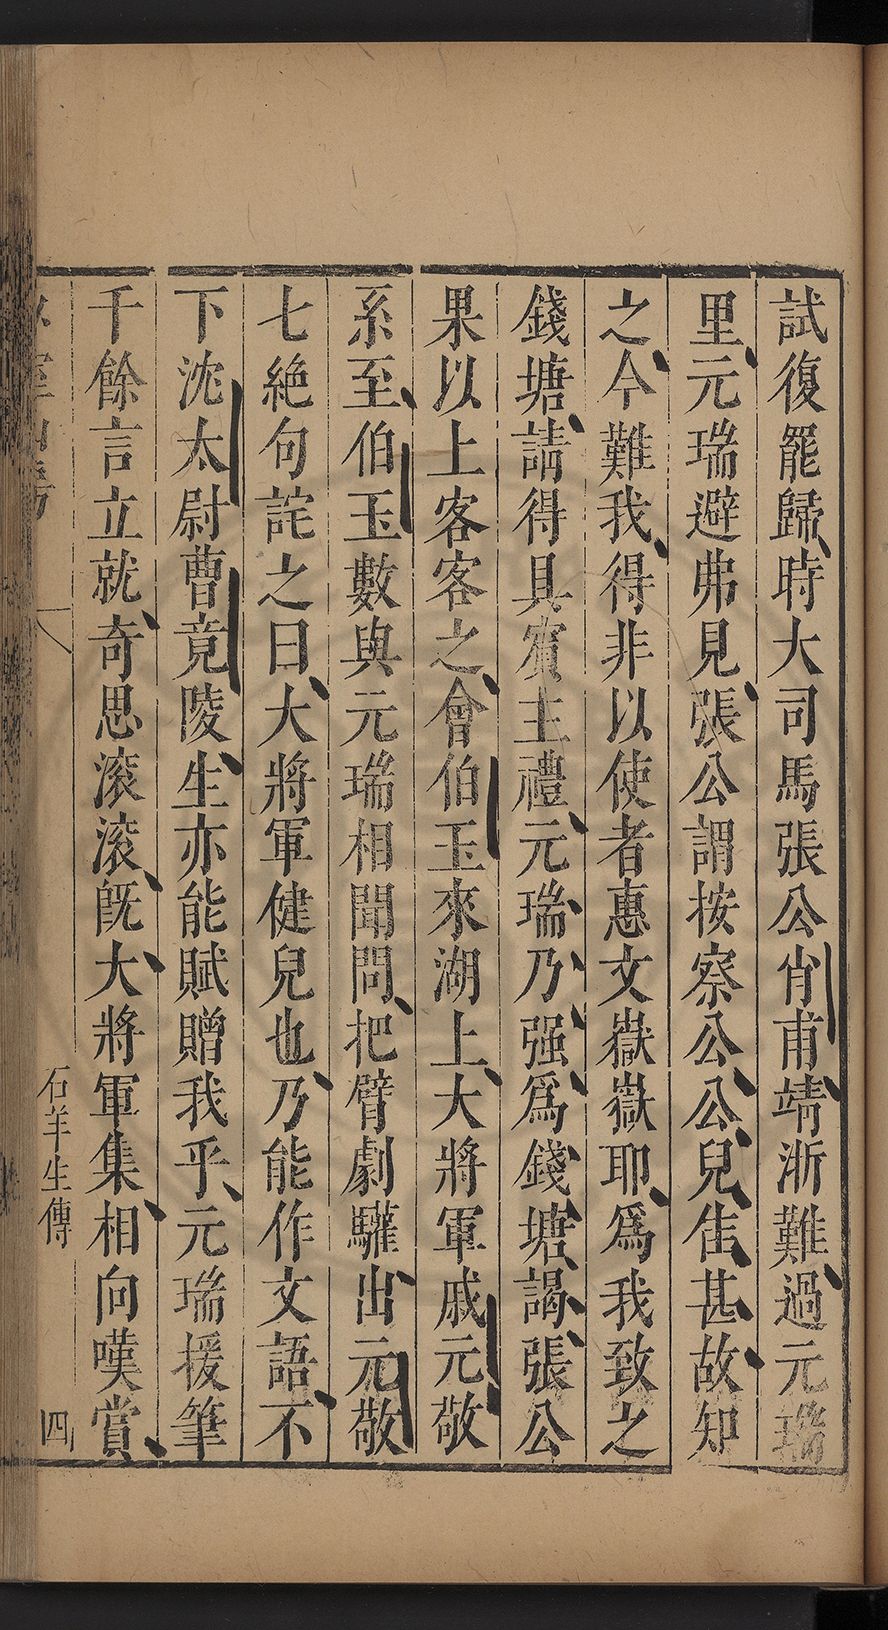 試復罷歸、時大司馬張公肖甫、靖浙難、過元瑞
里、元瑞避弗見、張公謂按察公、公、兒、雋、甚、故、知
之、今難我、得非以使者惠文嶽嶽耶、爲我致之
錢塘、請得具賓主禮、元瑞、乃、强、爲、錢、塘、謁、張、公
果以上客客之、會伯玉來湖上、大將軍戚元敬
系至、伯玉數與元瑞相聞問、把臂劇驩、出元敬
七絶句詫之曰、大將軍健兒也、乃能作文語、不
下沈太尉曹竟陵、生亦能賦贈我乎、元瑞援筆
千餘言立就、奇思滚滚、旣、大、將軍集、相向嘆賞、
石羊生傳
四